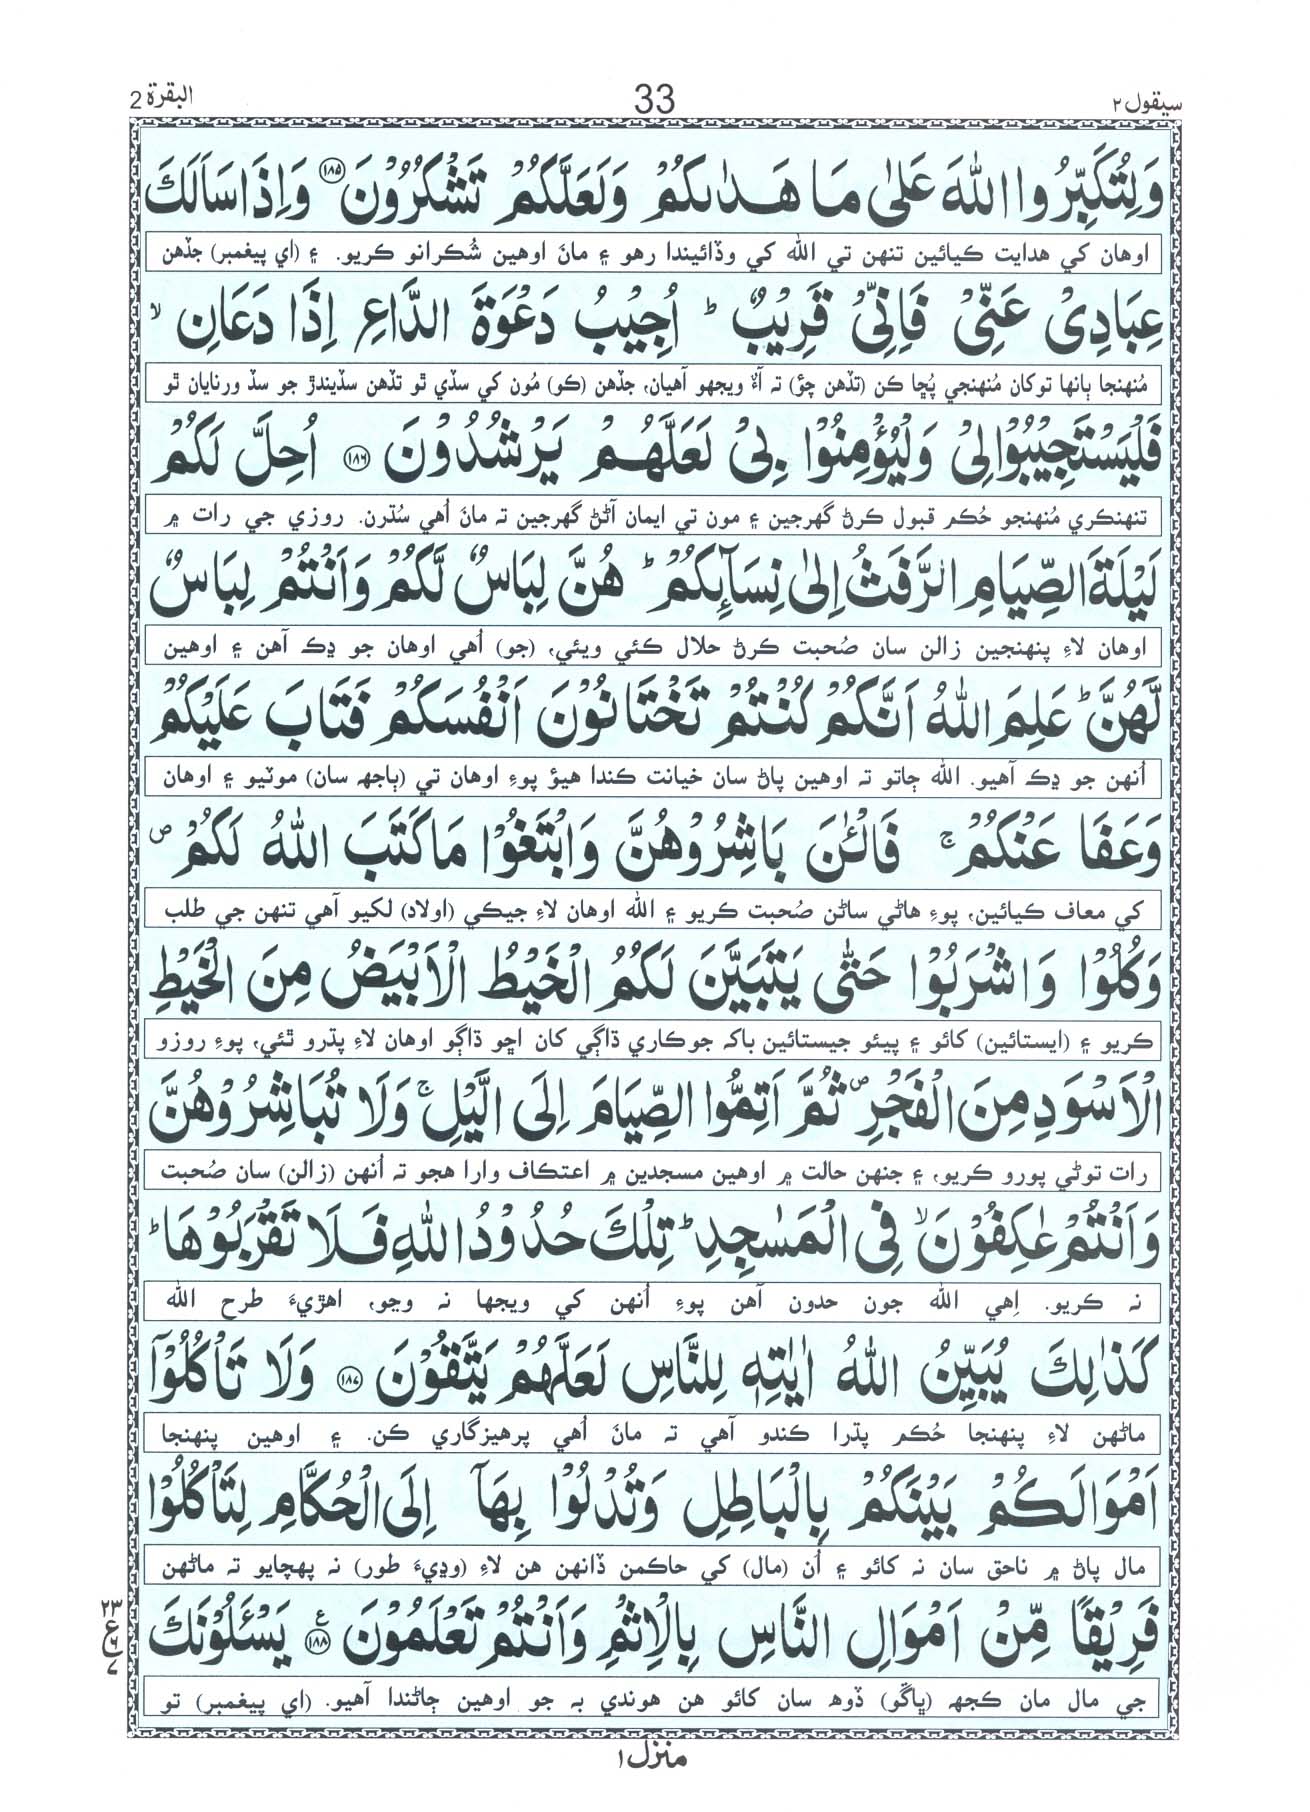 سيقول ٢ 33 البقرة 2
وَلِتُكَبِّرُوا اللّٰهَ عَلٰى مَا هَدٰىكُمْ وَلَعَلَّكُمْ تَشْكُرُوْنَ ﴿١٨٥﴾ وَاِذَا سَاَلَكَ
اوهان کي هدايت ڪيائين تنهن تي الله کي وڏائيندا رهو ۽ مانَ اوهين شُڪرانو ڪريو. ۽ (اي پيغمبر) جڏهن
عِبَادِىْ عَنِّىْ فَاِنِّىْ قَرِيْبٌ ؕ اُجِيْبُ دَعْوَةَ الدَّاعِ اِذَا دَعَانِ ۙ
مُنهنجا ٻانها توکان مُنهنجي پُڇا ڪن (تڏهن چؤ) تہ آءٌ ويجھو آهيان، جڏهن (ڪو) مُون کي سڏي ٿو تڏهن سڏيندڙ جو سڏ ورنايان ٿو
فَلْيَسْتَجِيْبُوْا لِىْ وَلْيُؤْمِنُوْا بِىْ لَعَلَّهُمْ يَرْشُدُوْنَ ﴿١٨٦﴾ اُحِلَّ لَكُمْ
تنهنڪري مُنهنجو حُڪم قبول ڪرڻ گهرجين ۽ مون تي ايمان آڻڻ گهرجين تہ مانَ اُهي سُڌرن. روزي جي رات ۾
لَيْلَةَ الصِّيَامِ الرَّفَثُ اِلٰى نِسَآئِكُمْ ؕ هُنَّ لِبَاسٌ لَّكُمْ وَاَنْتُمْ لِبَاسٌ
اوهان لاءِ پنهنجين زالن سان صُحبت ڪرڻ حلال ڪئي ويئي، (جو) اُهي اوهان جو ڍڪ آهن ۽ اوهين
لَّهُنَّ ؕ عَلِمَ اللّٰهُ اَنَّكُمْ كُنْتُمْ تَخْتَانُوْنَ اَنْفُسَكُمْ فَتَابَ عَلَيْكُمْ
اُنهن جو ڍڪ آهيو. الله ڄاتو تہ اوهين پاڻ سان خيانت ڪندا هيؤ پوءِ اوهان تي (ٻاجهہ سان) موٽيو ۽ اوهان
وَعَفَا عَنْكُمْ ۚ فَالْـٰٔنَ بَاشِرُوْهُنَّ وَابْتَغُوْا مَا كَتَبَ اللّٰهُ لَكُمْ ۪
کي معاف ڪيائين، پوءِ هاڻي ساڻن صُحبت ڪريو ۽ الله اوهان لاءِ جيڪي (اولاد) لکيو آهي تنهن جي طلب
وَكُلُوْا وَاشْرَبُوْا حَتّٰى يَتَبَيَّنَ لَكُمُ الْخَيْطُ الْاَبْيَضُ مِنَ الْخَيْطِ
ڪريو ۽ (ايستائين) کائو ۽ پيئو جيستائين باکہ جوڪاري ڌاڳي کان اڇو ڌاڳو اوهان لاءِ پڌرو ٿئي، پوءِ روزو
الْاَسْوَدِ مِنَ الْفَجْرِ ۪ ثُمَّ اَتِمُّوا الصِّيَامَ اِلَى الَّيْلِ ۚ وَلَا تُبَاشِرُوْهُنَّ
رات توڻي پورو ڪريو، ۽ جنهن حالت ۾ اوهين مسجدين ۾ اعتڪاف وارا هجو تہ اُنهن (زالن) سان صُحبت
وَاَنْتُمْ عٰكِفُوْنَ ۙ فِى الْمَسٰجِدِ ؕ تِلْكَ حُدُوْدُ اللّٰهِ فَلَا تَقْرَبُوْهَا ؕ
نہ ڪريو. اِهي الله جون حدون آهن پوءِ اُنهن کي ويجھا نہ وڃو، اهڙيءَ طرح الله
كَذٰلِكَ يُبَيِّنُ اللّٰهُ اٰيٰتِهٖ لِلنَّاسِ لَعَلَّهُمْ يَتَّقُوْنَ ﴿١٨٧﴾ وَلَا تَاْكُلُوْٓا
ماڻهن لاءِ پنهنجا حُڪم پڌرا ڪندو آهي تہ مانَ اُهي پرهيزگاري ڪن. ۽ اوهين پنهنجا
اَمْوَالَكُمْ بَيْنَكُمْ بِالْبَاطِلِ وَتُدْلُوْا بِهَآ اِلَى الْحُكَّامِ لِتَاْكُلُوْا
مال پاڻ ۾ ناحق سان نہ کائو ۽ اُن (مال) کي حاڪمن ڏانهن هن لاءِ (وڍيءَ طور) نہ پهچايو تہ ماڻهن
فَرِيْقًا مِّنْ اَمْوَالِ النَّاسِ بِالْاِثْمِ وَاَنْتُمْ تَعْلَمُوْنَ ﴿١٨٨﴾ ع يَسْـَٔلُوْنَكَ
٢٣ ع ٦ ٧
جي مال مان ڪجهہ (ڀاڱو) ڏوهہ سان کائو هن هوندي بہ جو اوهين ڄاڻندا آهيو. (اي پيغمبر) تو
منزل ١